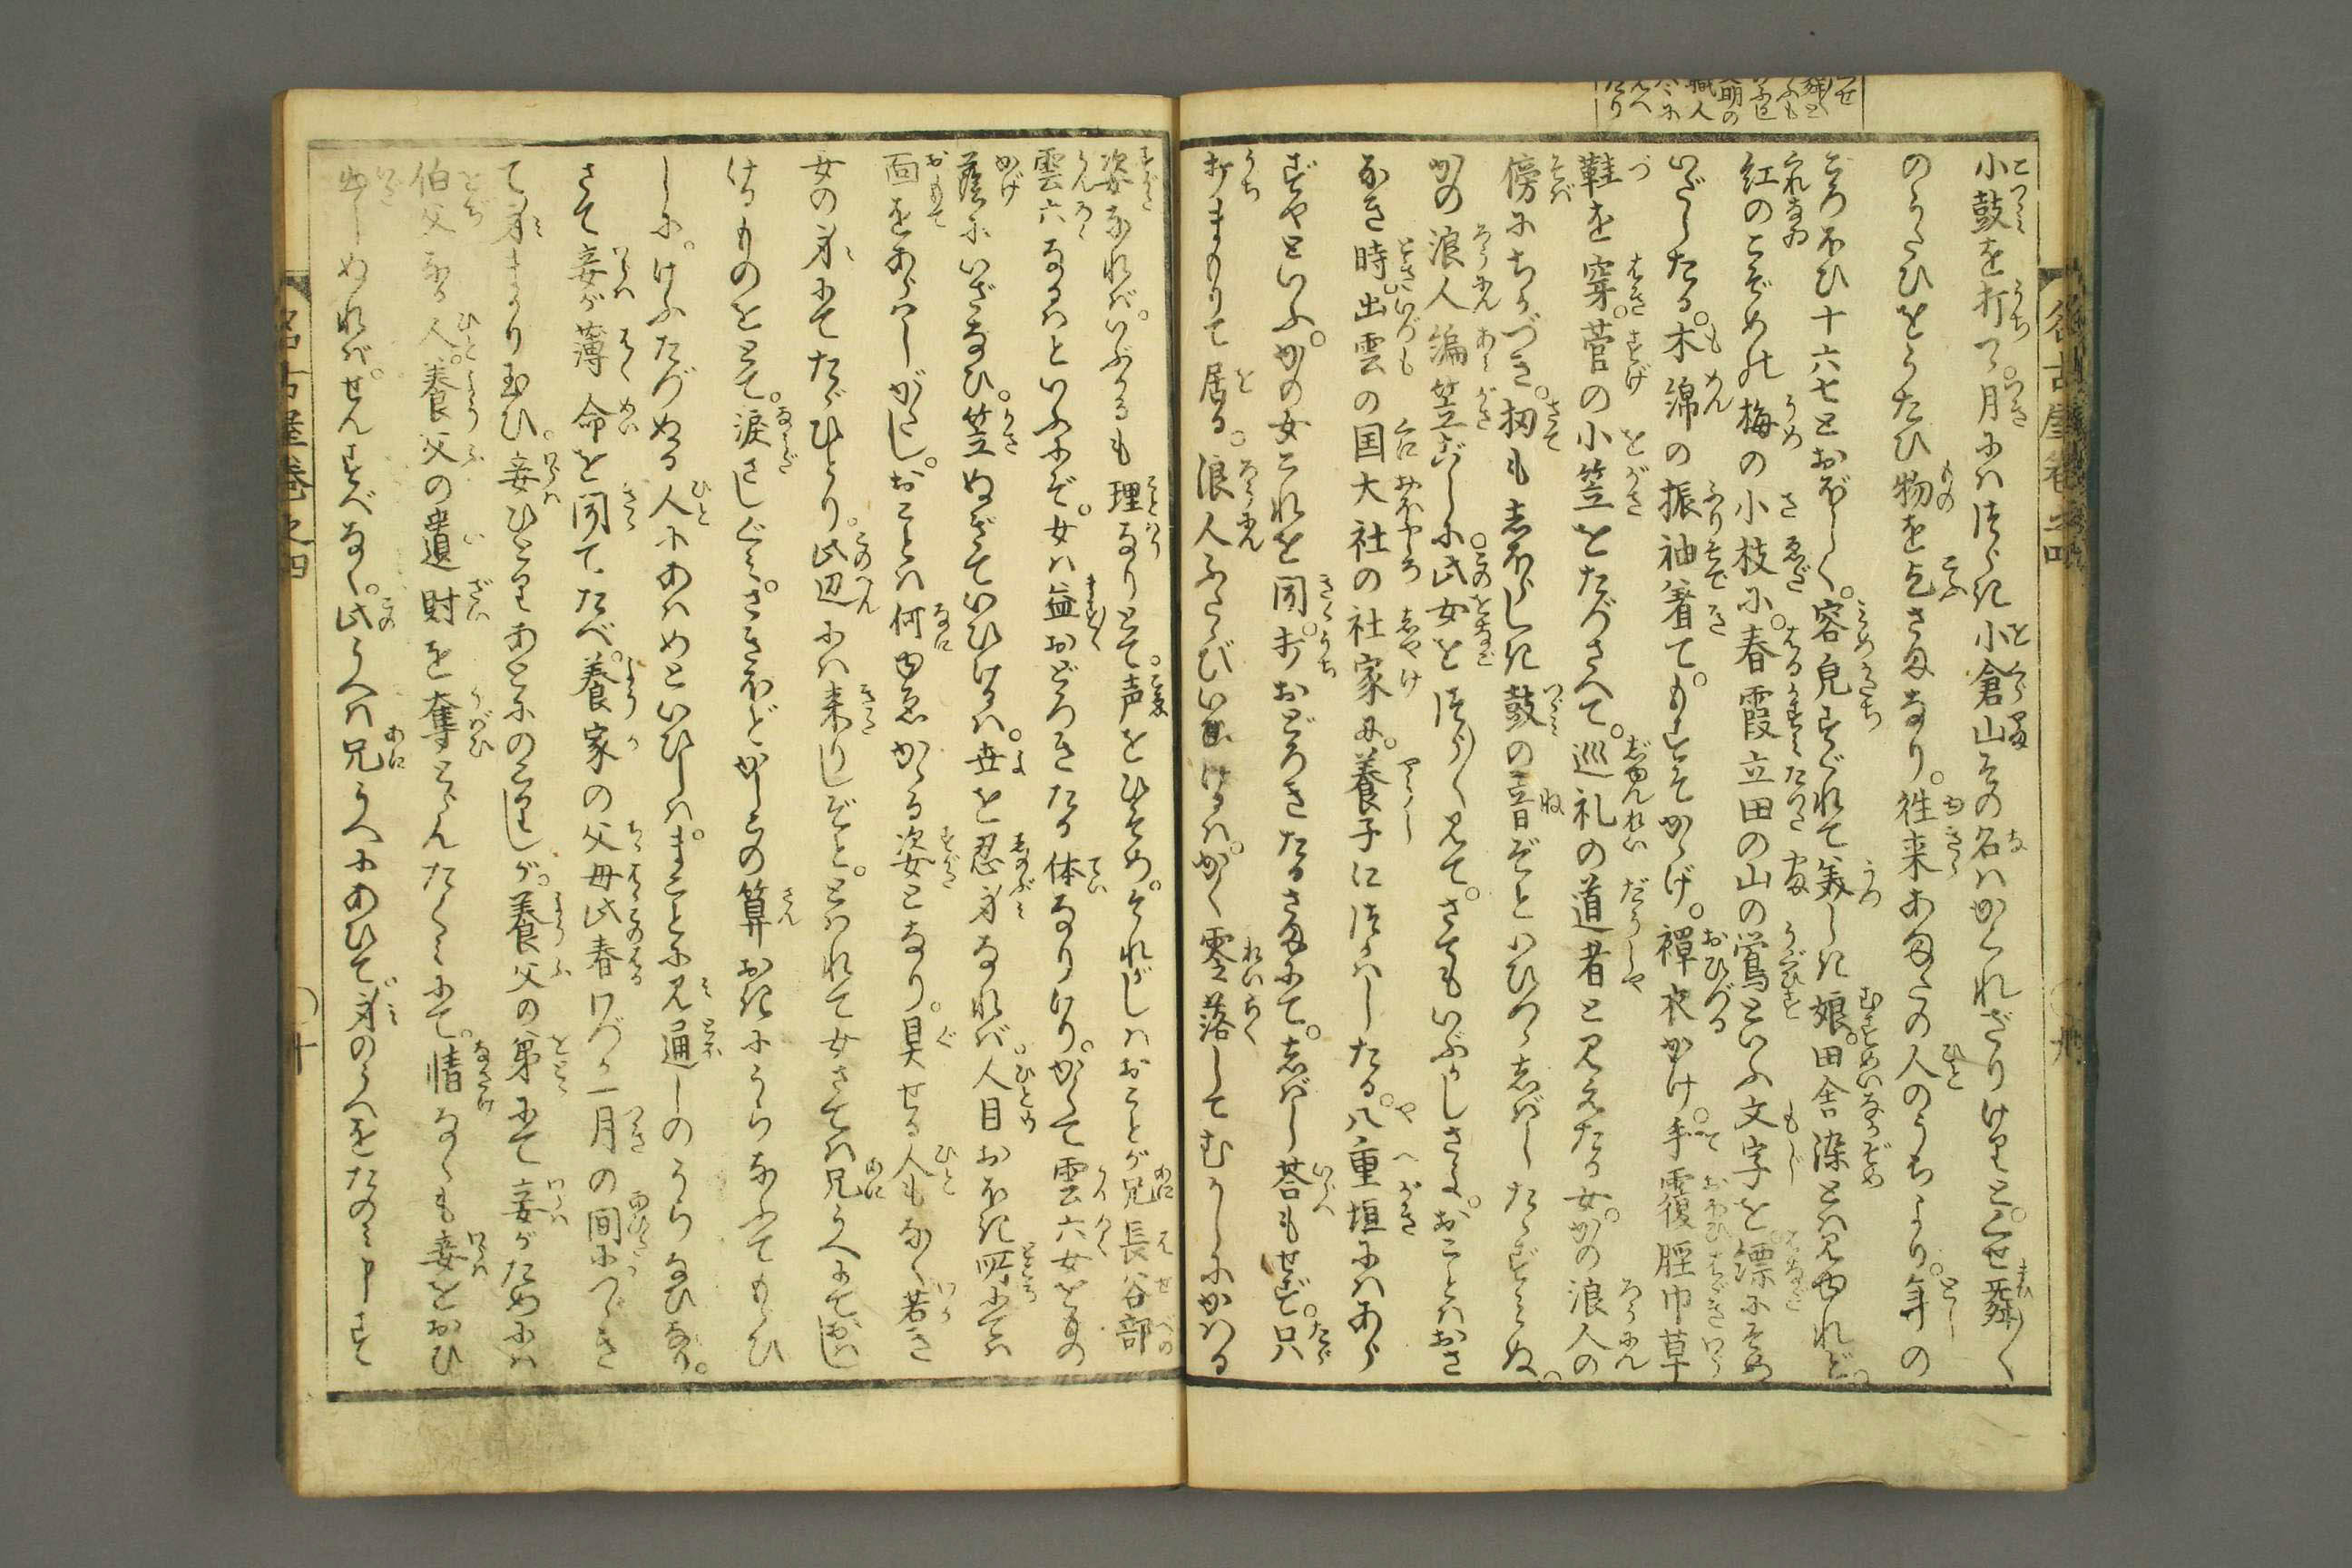 小鼓を打つ。月にはつゞれ小倉山その名はかくれざりけりと。くせ舞〳〵
のうたひをうたひ物を乞さまなり。往来あまたの人のうちより。年の
ころほひ十六七とおぼしく。容皃すぐれて美しき娘。田舎染とは見ゆれど。
紅のこぞめの梅の小枝に。春霞立田の山の鶯といふ文字を。縹にそめ
いだしたる。木綿の振袖着て。もすそかゝげ。襌衣かけ。手覆脛巾草
鞋を穿。菅の小笠をたづさへて。巡礼の道者と見えたる女。かの浪人の
傍にちかづき。扨もしほらしき鼓の音ぞといひつゝしばしたゝずみぬ。
かの浪人編笠ごしに此女をつら〳〵見て。さてもいぶかしさよ。おことはおさ
なき時。出雲の国大社の社家に。養子につかはしたる。八重垣にはあら
ずやといふ。かの女これを聞。打おどろきたるさまにて。しばし答もせず。只
打まもりて居る。浪人ふたゝびいひけるは。かく零落してむかしにかはる
姿なれば。いぶかるも理なりとて。声をひそめ。それがしはおことが兄長谷部
雲六なるはといふにぞ。女は益おどろきたる体なりけり。かくて雲六女をものゝ
蔭にいざなひ。笠ぬぎていひけるは。世を忍身なれば。人目おほき所にては
面をあらはしがたし。おことは何ゆゑかゝる姿となり。具せる人もなく若き
女の身にてたゞひとり。此辺には来りしぞと。とはれて女さては兄うへにておはし
けるものをとて。涙さしぐみ。さきほどかしこの算おきにうらなふてもらひ
しに。けふたづぬる人にあはめといひしは。まことに見通しのうらなひなり。
さて妾が薄命を聞てたべ。養家の父母此春わづか一月の間につゞき
て身まかり玉ひ。妾ひとりあとにのこりしが。養父の弟にて妾がためには
伯父なる人。養父の遺財を奪とらんたくみにて。情なくも妾をおひ
出しぬれば。せんすべなく。此うへは兄うへにあひて身のうへをたのみ申すて
名古屋巻之四
名古屋巻之四
九
十